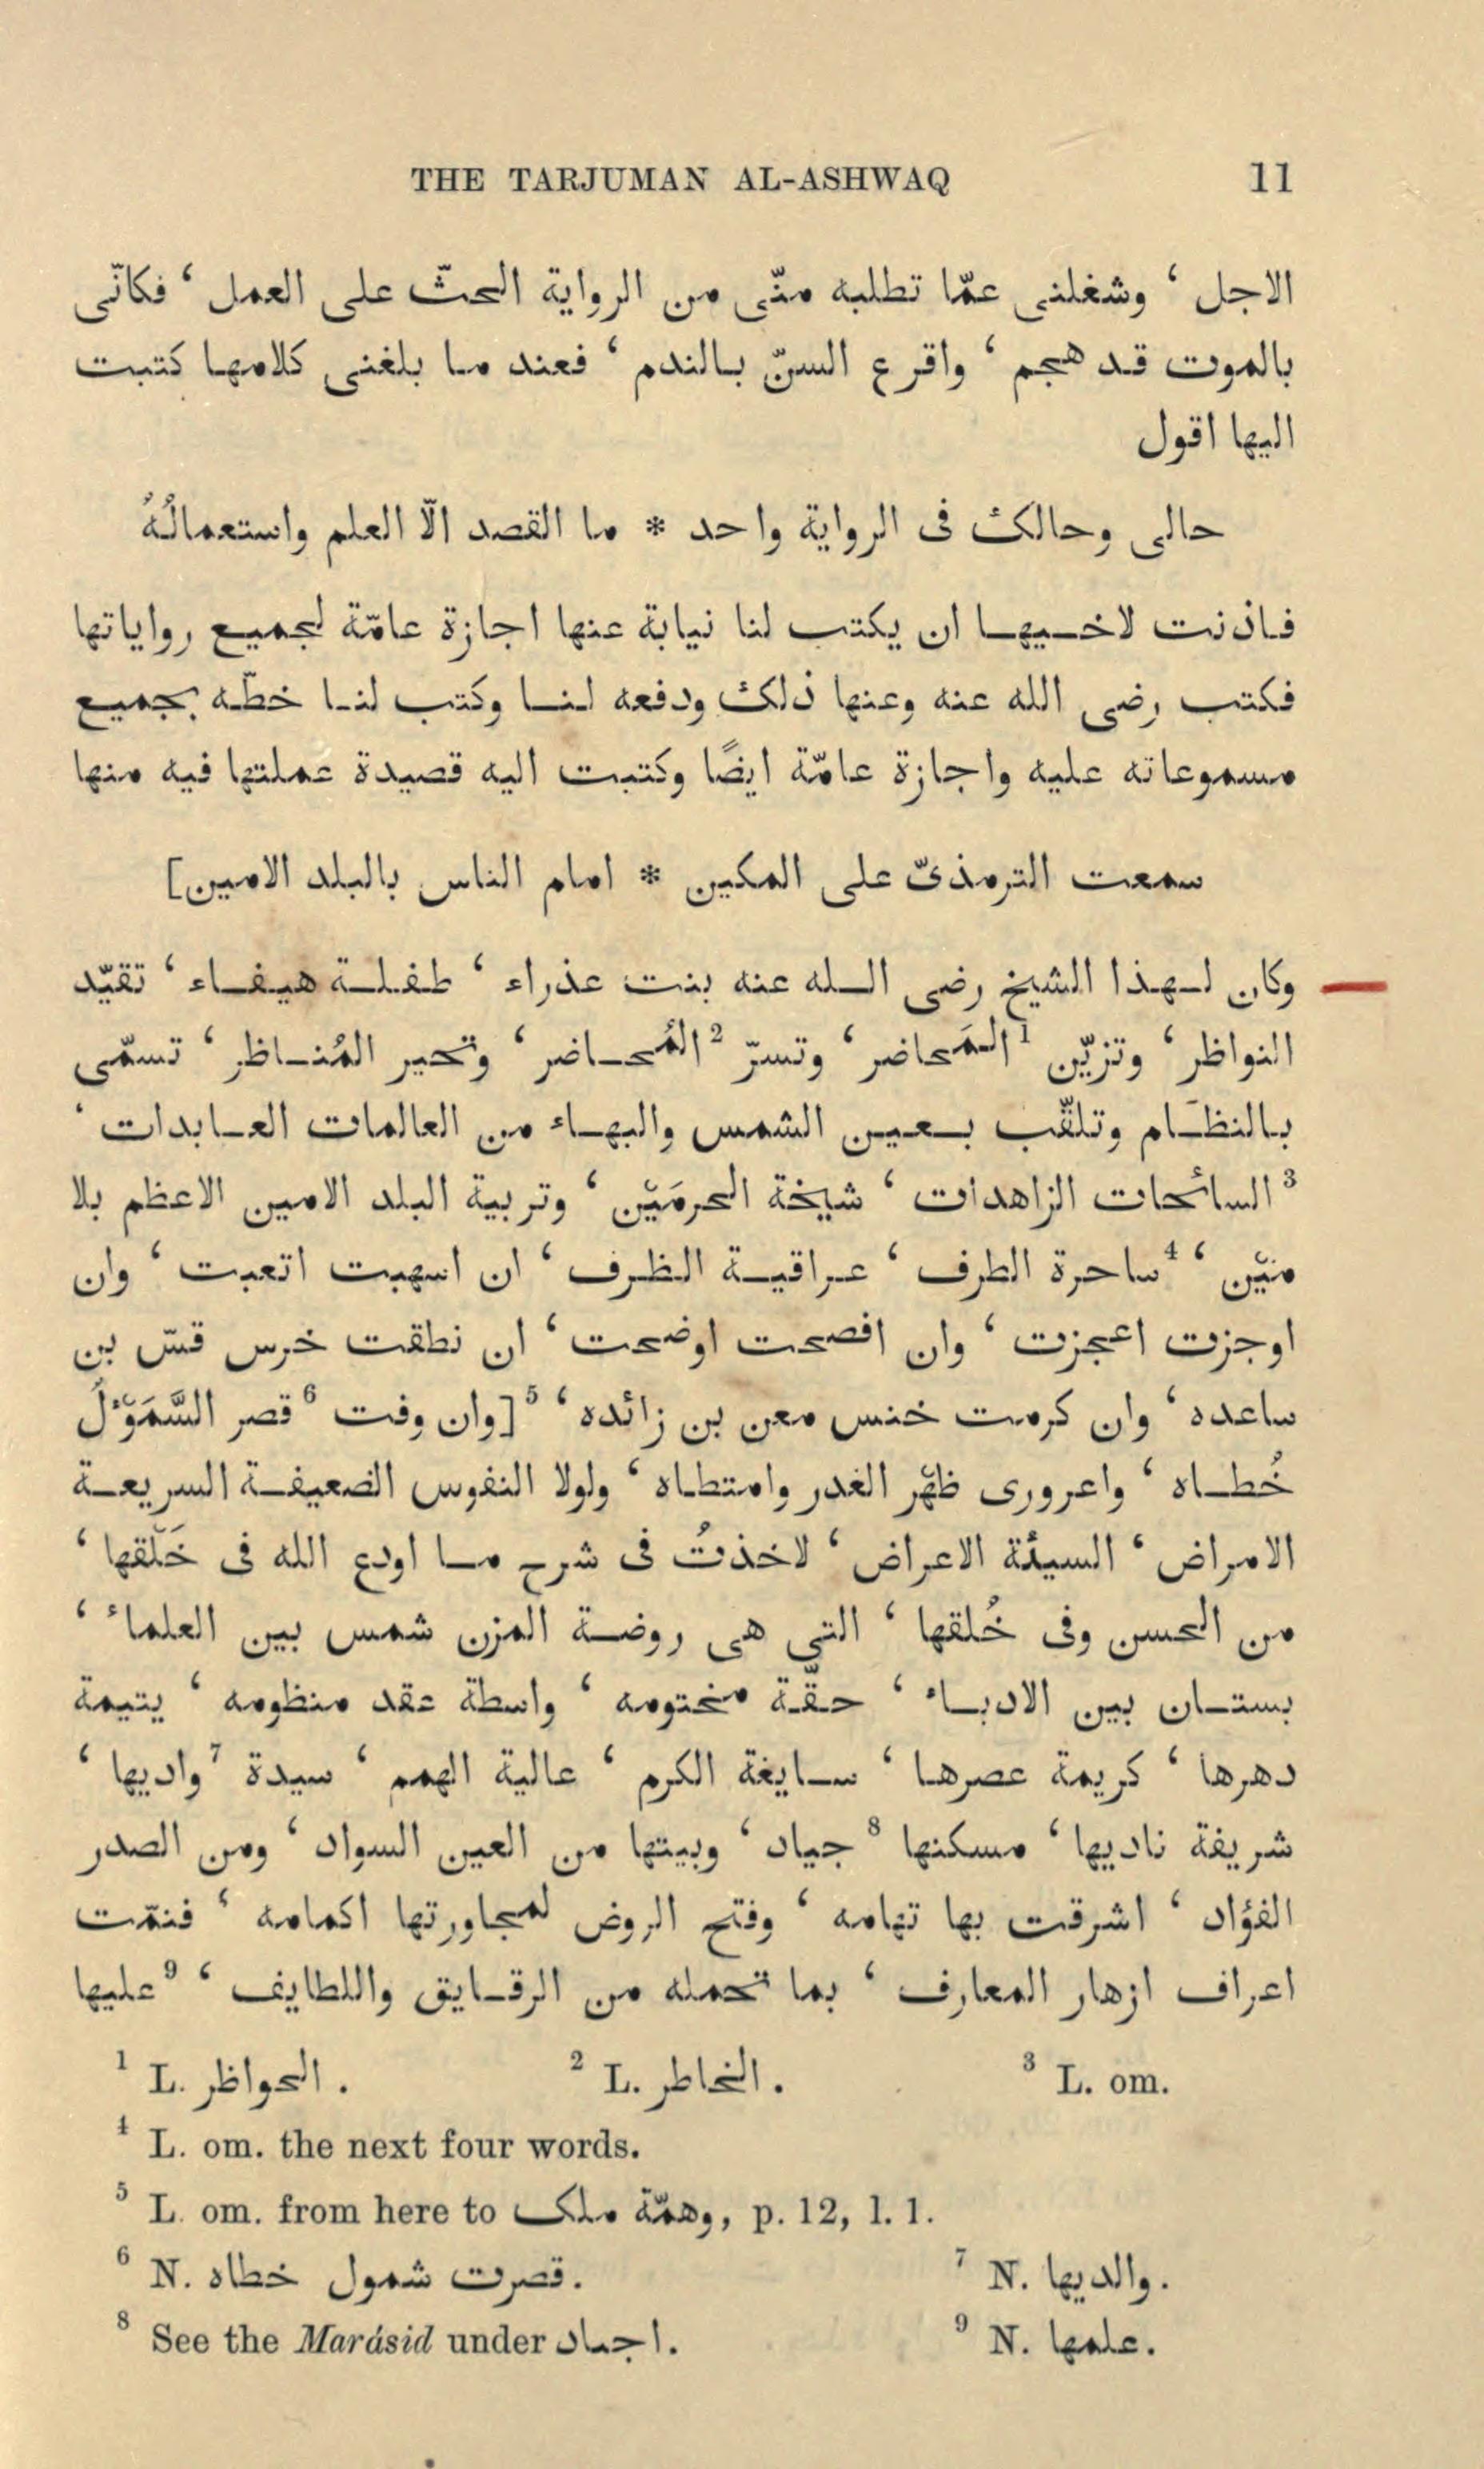 THE TARJUMAN AL-ASHWAQ 11
الاجل ‘ وشغلنى عمّا تطلبه منّى من الرواية الحثّ على العمل ‘ فكانّى
بالموت قد هجم ‘ واقرع السنّ بالندم ‘ فعند ما بلغنى كلامها كتبت
اليها اقول
حالى وحالك فى الرواية واحد * ما القصد الّا العلم واستعمالُهُ
فاذنت لاخيها ان يكتب لنا نيابة عنها اجازة عامّة لجميع رواياتها
فكتب رضى الله عنه وعنها ذلك ودفعه لنا وكتب لنا خطّه بجميع
مسموعاته عليه واجازة عامّة ايضًا وكتبت اليه قصيدة عملتها فيه منها
سمعت الترمذىّ على المكين * امام الناس بالبلد الامين]
وكان لهذا الشيخ رضى الله عنه بنت عذراء ‘ طفلة هيفاء ‘ تقيّد
النواظر ‘ وتزيّن ¹المَحاضر ‘ وتسرّ ²المُحاضر ‘ وتحير المُناظر ‘ تسمّى
بالنظام وتلقّب بعين الشمس والبهاء من العالمات العابدات ‘
³السائحات الزاهدات ‘ شيخة الحرمَيْن ‘ وتربية البلد الامين الاعظم بلا
مَيْن ‘ ⁴ساحرة الطرف ‘ عراقية الظرف ‘ ان اسهبت اتعبت ‘ وان
اوجزت اعجزت ‘ وان افصحت اوضحت ‘ ان نطقت خرس قسّ بن
ساعده ‘ وان كرمت خنس معن بن زائده ‘ ⁵[وان وفت ⁶قصر السَّمَوْءلُ
خُطاه ‘ واعرورى ظهْر الغدر وامتطاه ‘ ولولا النفوس الضعيفة السريعة
الامراض ‘ السيئة الاعراض ‘ لاخذتُ فى شرح ما اودع الله فى خَلْقها ‘
من الحسن وفى خُلقها ‘ التى هى روضة المزن شمس بين العلماء ‘
بستان بين الادباء ‘ حقّة مختومه ‘ واسطة عقد منظومه ‘ يتيمة
دهرها ‘ كريمة عصرها ‘ سايغة الكرم ‘ عالية الهمم ‘ سيدة ⁷واديها ‘
شريفة ناديها ‘ مسكنها ⁸جياد ‘ وبيتها من العين السواد ‘ ومن الصدر
الفؤاد ‘ اشرقت بها تهامه ‘ وفتح الروض لمجاورتها اكمامه ‘ فنمّت
اعراف ازهار المعارف ‘ بما تحمله من الرقايق واللطايف ‘ ⁹عليها
¹ L. الحواظر. ² L. الخاطر. ³ L. om.
⁴ L. om. the next four words.
⁵ L. om. from here to وهمّة ملك, p. 12, l. 1.
⁶ N. قصرت شمول خطاه. ⁷ N. والديها.
⁸ See the Marásid under اجياد. ⁹ N. علمها.